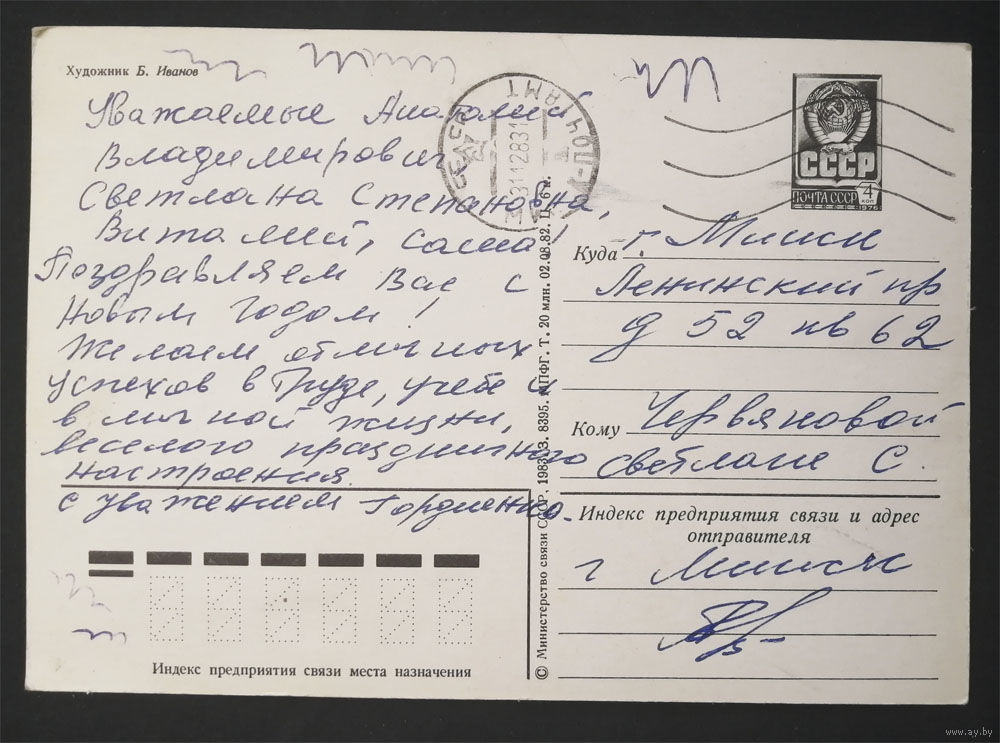 Художник Б. Иванов
Уважаемые Анатолий
Владимирович
Светлана Степановна,
Виталий, Саша!
Поздравляем Вас с
Новым годом!
Желаем отличных
успехов в труде, учебе и
в личной жизни,
веселого праздничного
настроения.
С уважением Гордиенко.
Индекс предприятия связи места назначения
© Министерство связи СССР, 1983. З. 8395. МПФГ. Т. 20 млн. 02.08.82. Ц. 6 к.
СССР
ПОЧТА СССР
4
коп
1976
311283
Куда г. Минск
Ленинский пр
д 52 кв 62
Кому Червяковой
Светлане С.
Индекс предприятия связи и адрес
отправителя
г Минск
www.ay.by